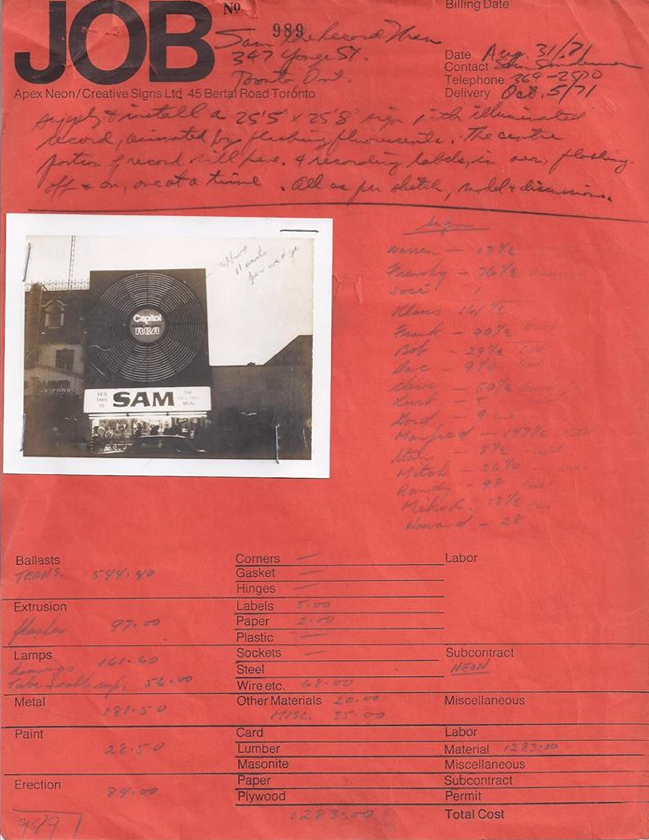 JOB
No 989
Billing Date
Sam the Record Man
347 Yonge St.
Toronto Ont.
Date Aug 31/71
Contact Sam Sniderman
Telephone
Delivery Oct. 5/71
Apex Neon/Creative Signs Ltd 45 Bertal Road Toronto
supply & install a 25'5" x 25'8" sign with illuminated
record, animated by flashing fluorescents. The centre
portion of record will have 4 recording labels, in neon, flashing
off & on, one at a time. All as per sketch, model & discussions.
Capitol
RCA
YES THIS IS SAM THE RECORD MAN
Warren - 19½
Klaus
Frank - 90½
Bob - 29½
Kurt - 5
Gord - 9
Manfred
Stan - 8½
Mitch
Randy - 98
Howard - 28
Ballasts
TRANS. 544.40
Extrusion
flasher 97.00
Lamps
housings 161.60
56.00
Metal
181.50
Paint
28.50
Erection
84.00
989
Corners —
Gasket —
Hinges —
Labels 5.00
Paper 2.00
Plastic —
Sockets —
Steel
Wire etc. 68.00
Other Materials 20.00
MISC. 35.00
Card
Lumber
Masonite
Paper
Plywood
1283.00
Labor
Subcontract
NEON
Miscellaneous
Labor
Material 1283.00
Miscellaneous
Subcontract
Permit
Total Cost